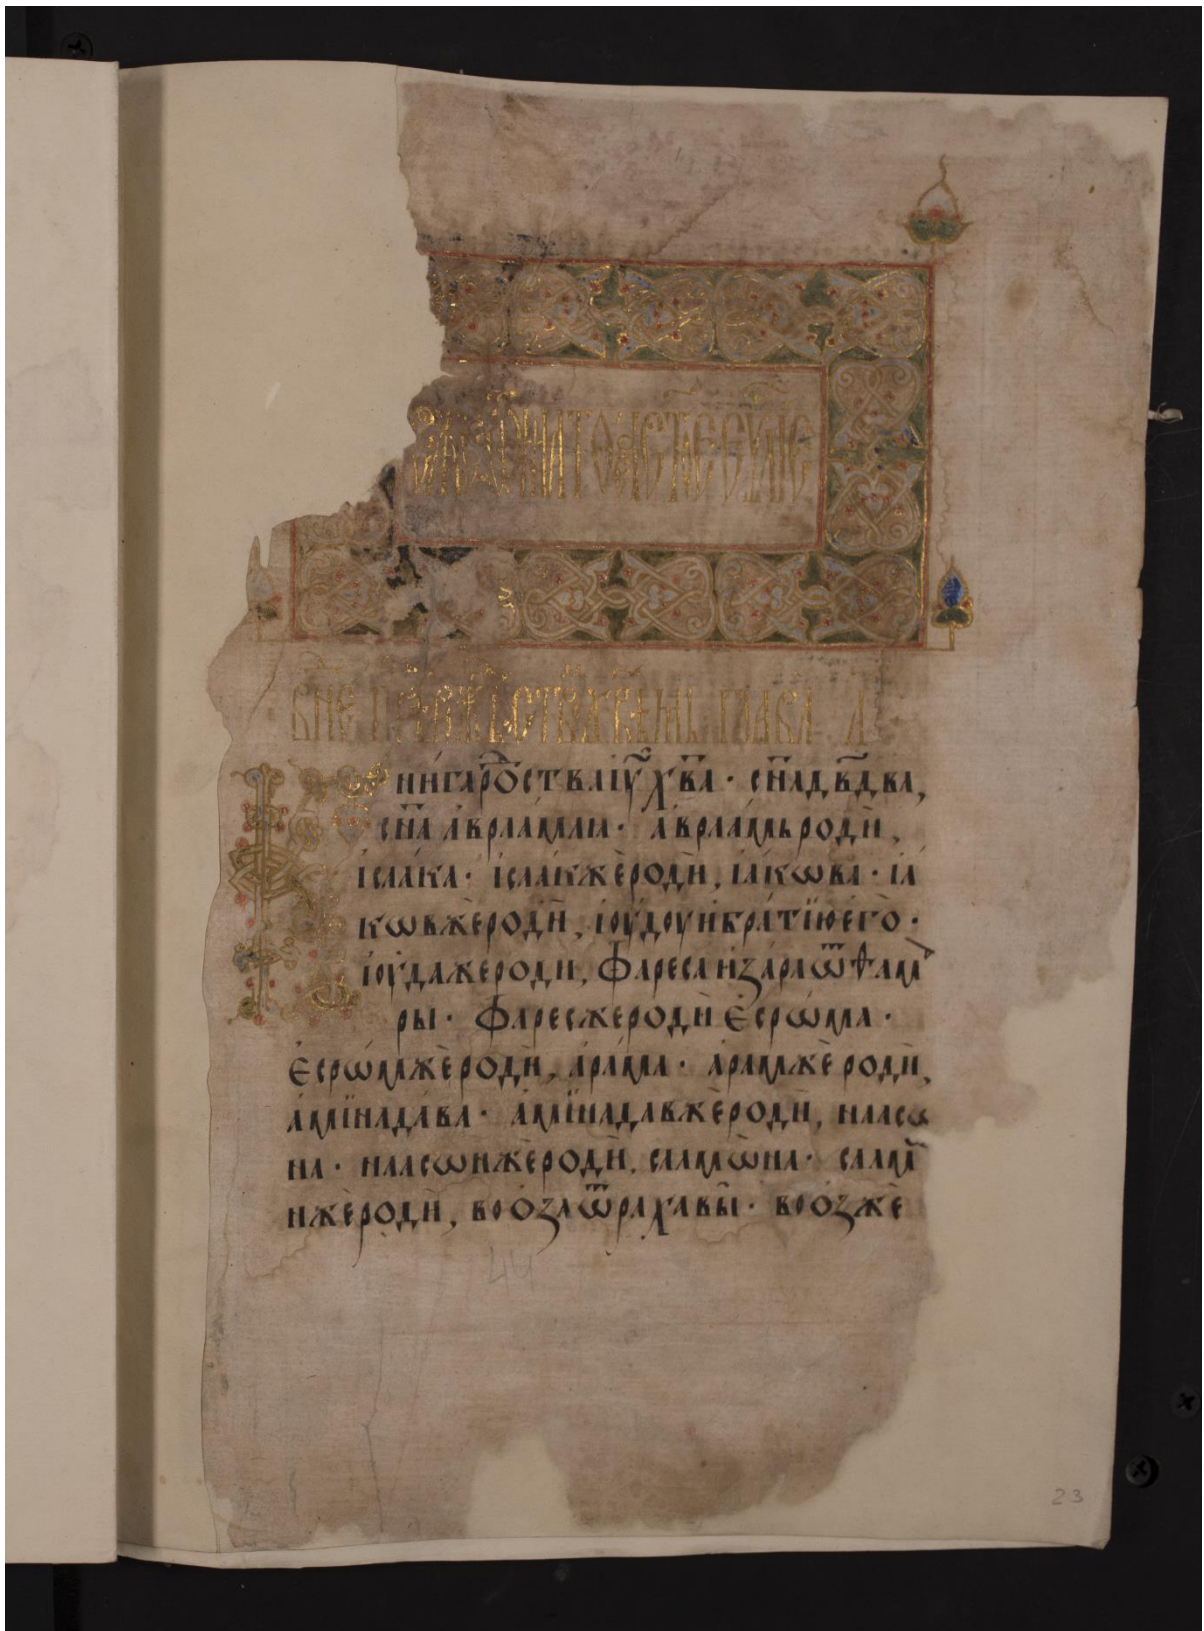 стое еѵⷢ҇лїе
внеⷣ҇ прⷣе рожⷣьством хв҃ѣмь глава а҃
ниги роⷣства іу҃ х҃ва · сн҃а дв҃два,
сн҃а авраамлѧ · авраамь роди,
ісаака · ісаак же роди, іакѡва · іа
кѡв же роди, іоудоу и братїю его ·
іоуда же роди, фареса и зара ѿ ѳамⷶ
ры · фарес же роди есрѡма ·
есрѡм же роди, арама · арам же роди,
амїнадава · амїнадав же роди, наасѡ
на · наасѡн же роди, салмѡна · салмѡ
н же роди, вооза ѿ рахавы · вооз же
44
23